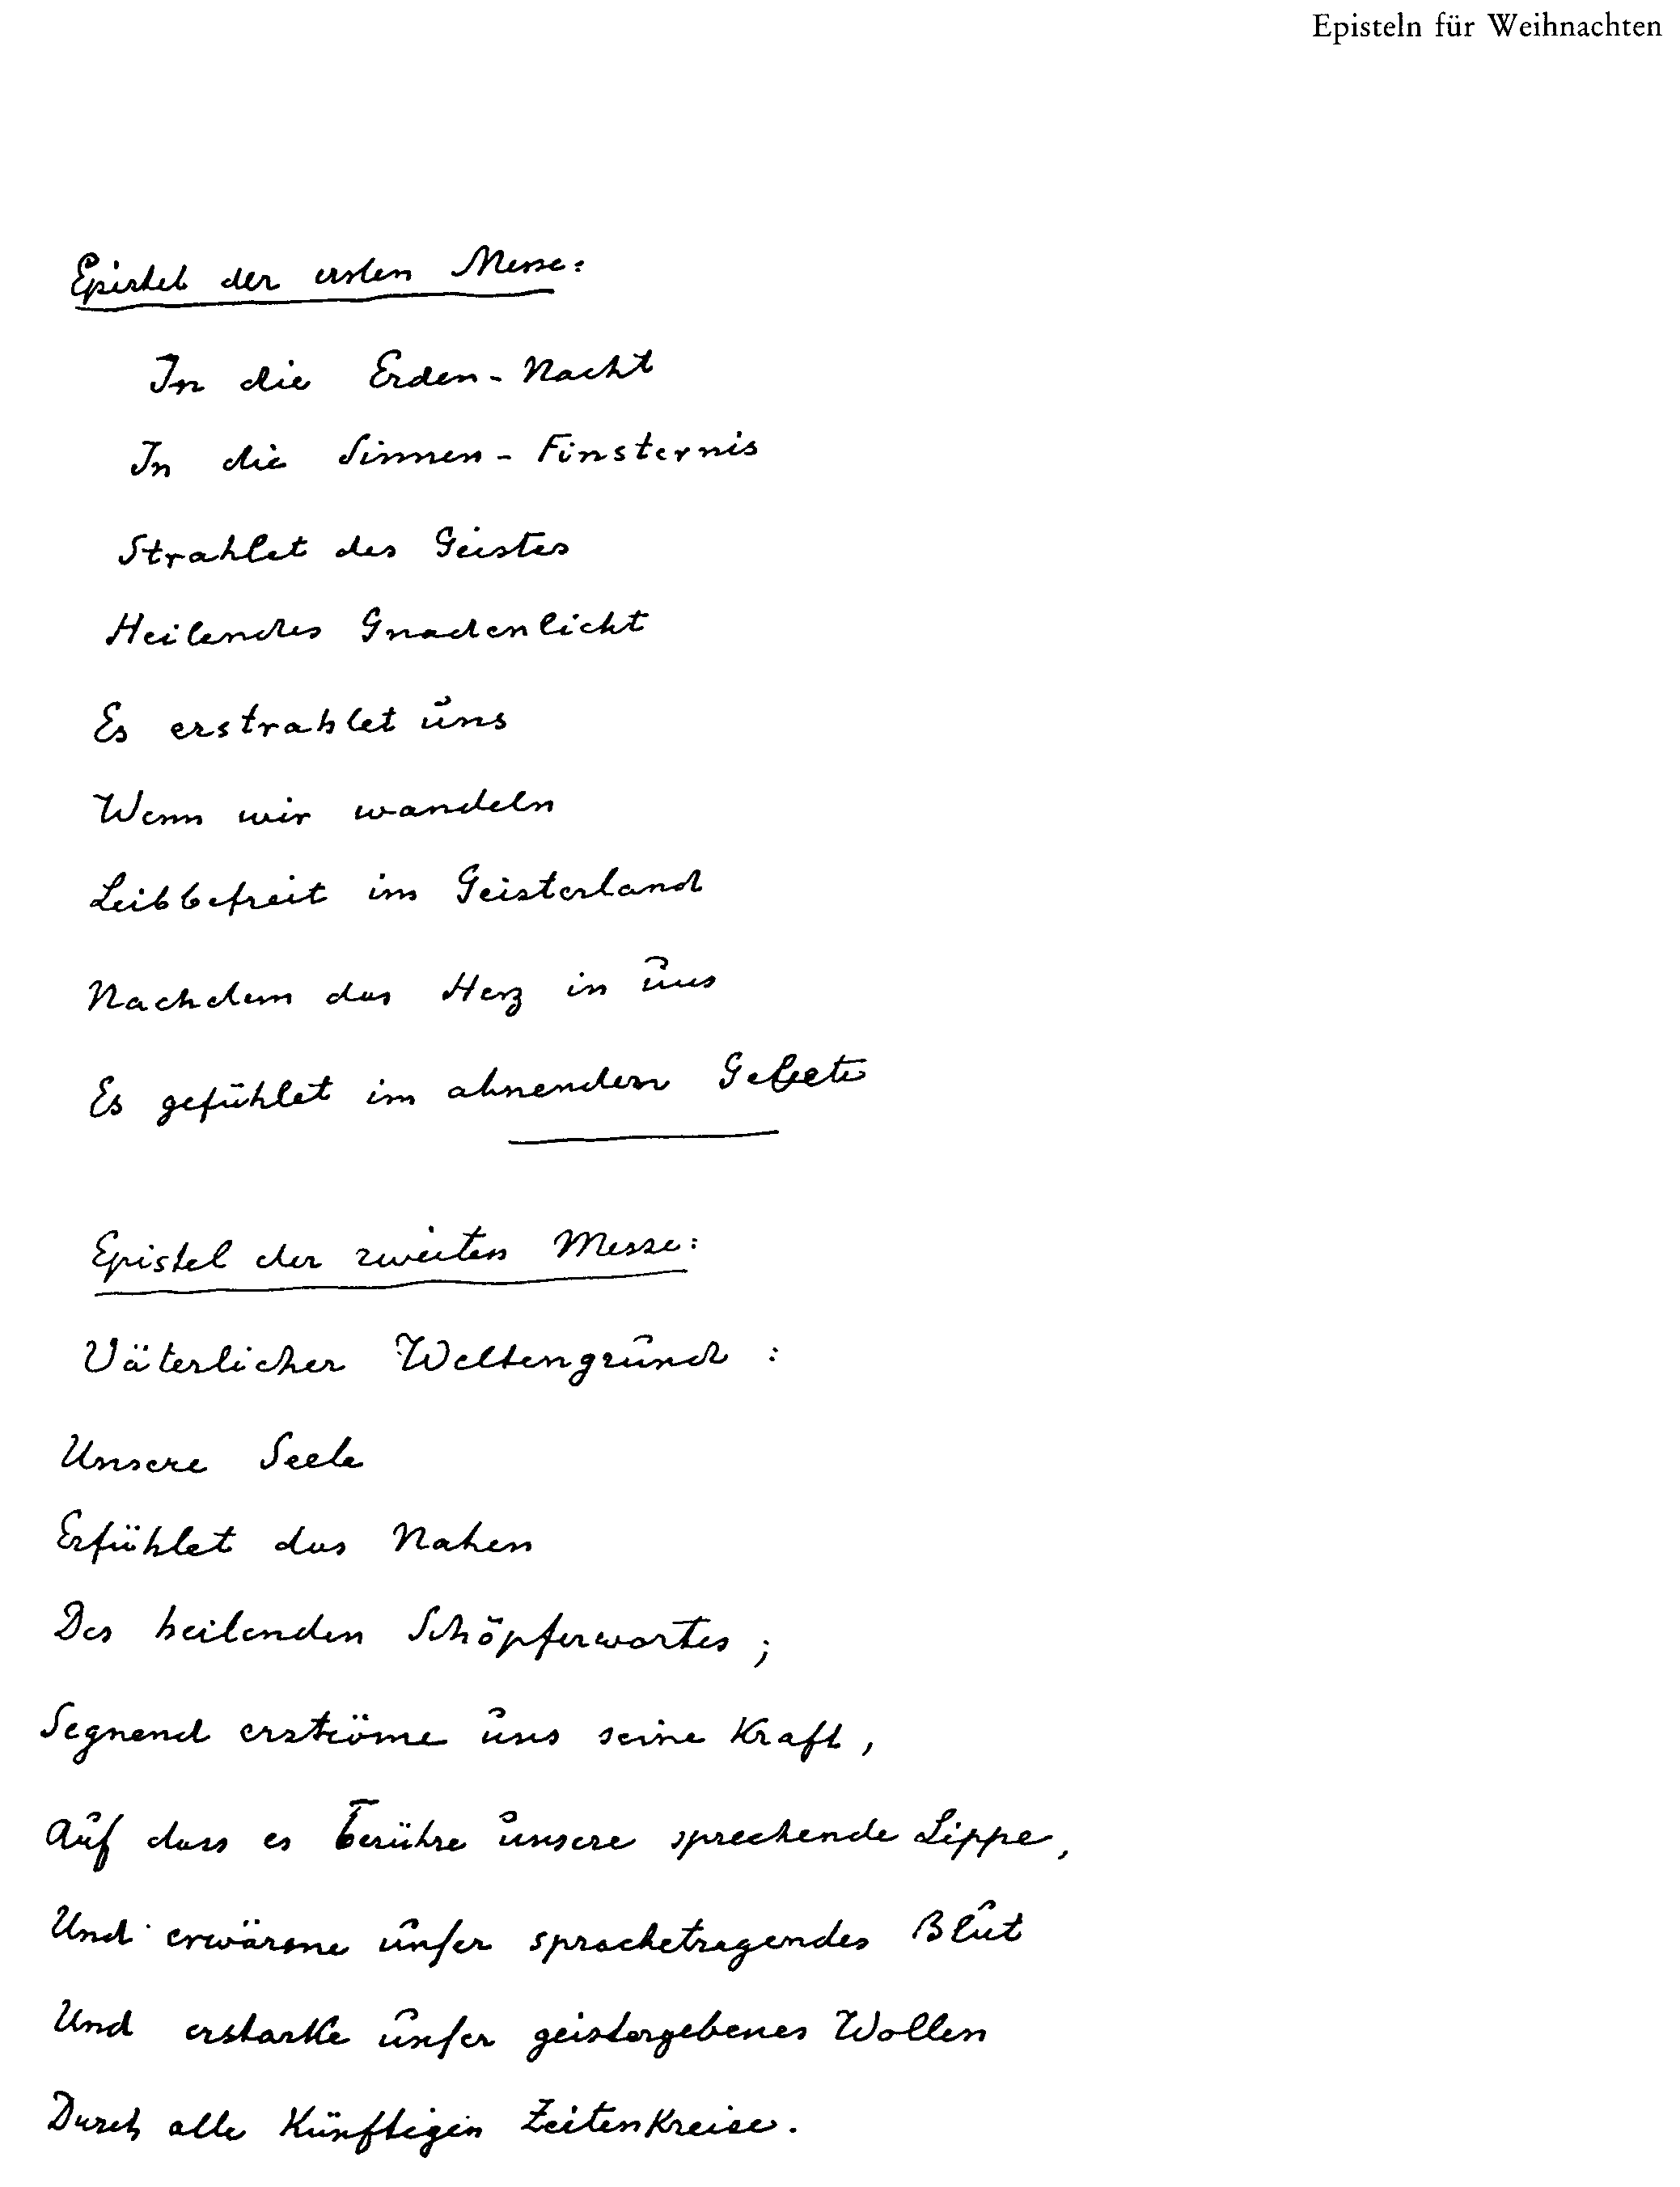 Episteln für Weihnachten
Epistel der ersten Messe:
In die Erden-Nacht
In die Sinnen-Finsternis
Strahlet des Geistes
Heilendes Gnadenlicht
Es erstrahlet uns
Wenn wir wandeln
Leibbefreit im Geisterland
Nachdem das Herz in uns
Es gefühlet im ahnenden Gebete
Epistel der zweiten Messe:
Väterlicher Weltengrund :
Unsere Seele
Erfühlet das Nahen
Des heilenden Schöpferwortes ;
Segnend erströme uns seine Kraft,
Auf dass es berühre unsere sprechende Lippe,
Und erwärme unser sprachetragendes Blut
Und erstarke unser geistergebenes Wollen
Durch alle künftigen Zeitenkreise.